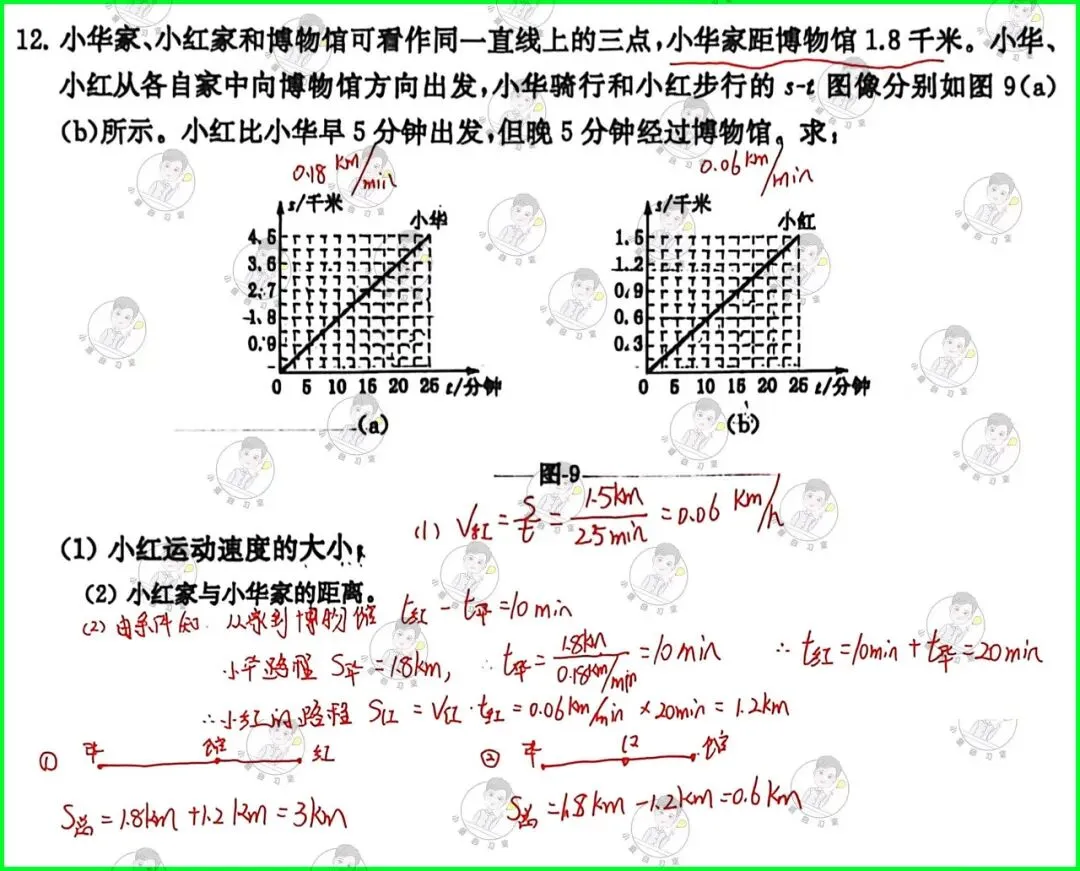 12. 小华家、小红家和博物馆可看作同一直线上的三点，小华家距博物馆 1.8 千米。小华、
小红从各自家中向博物馆方向出发，小华骑行和小红步行的 s-t 图像分别如图 9(a)
(b)所示。小红比小华早 5 分钟出发，但晚 5 分钟经过博物馆。求：
0.18 km/min
0.06 km/min
s/千米
小华
4.5
3.6
2.7
1.8
0.9
0 5 10 15 20 25 t/分钟
(a)
s/千米
小红
1.5
1.2
0.9
0.6
0.3
0 5 10 15 20 25 t/分钟
(b)
图-9
(1) V红 = s/t = 1.5km/25min = 0.06 km/h
(1) 小红运动速度的大小；
(2) 小红家与小华家的距离。
(2) 由条件知 从家到博物馆 t红 - t华 = 10 min
小华路程 S华 = 1.8km, ∴ t华 = 1.8km/0.18km/min = 10 min ∴ t红 = 10min + t华 = 20 min
∴ 小红的路程 S红 = V红·t红 = 0.06km/min × 20min = 1.2km
① 华 馆 红
② 华 红 馆
S总 = 1.8km + 1.2km = 3km
S总 = 1.8km - 1.2km = 0.6km